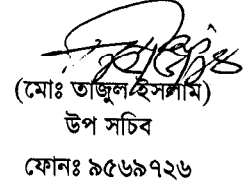 (মোঃ তাজুল ইসলাম)
উপ সচিব
ফোনঃ ৯৫৬৯৭২৬